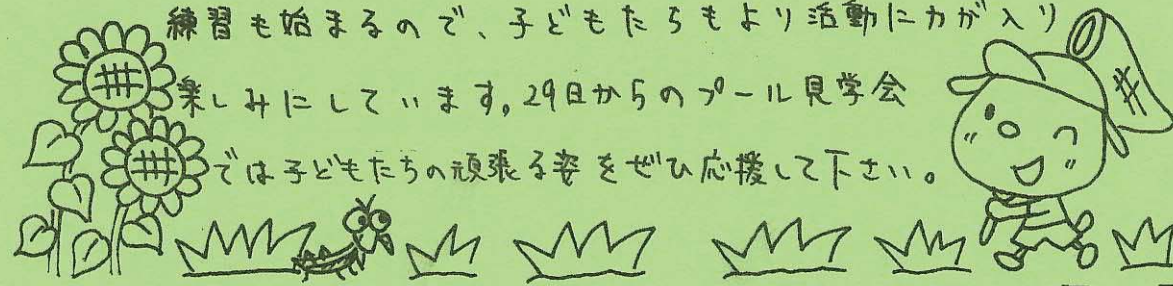 練習も始まるので、子どもたちもより活動に力が入り
楽しみにしています。29日からのプール見学会
では子どもたちの頑張る姿をぜひ応援して下さい。